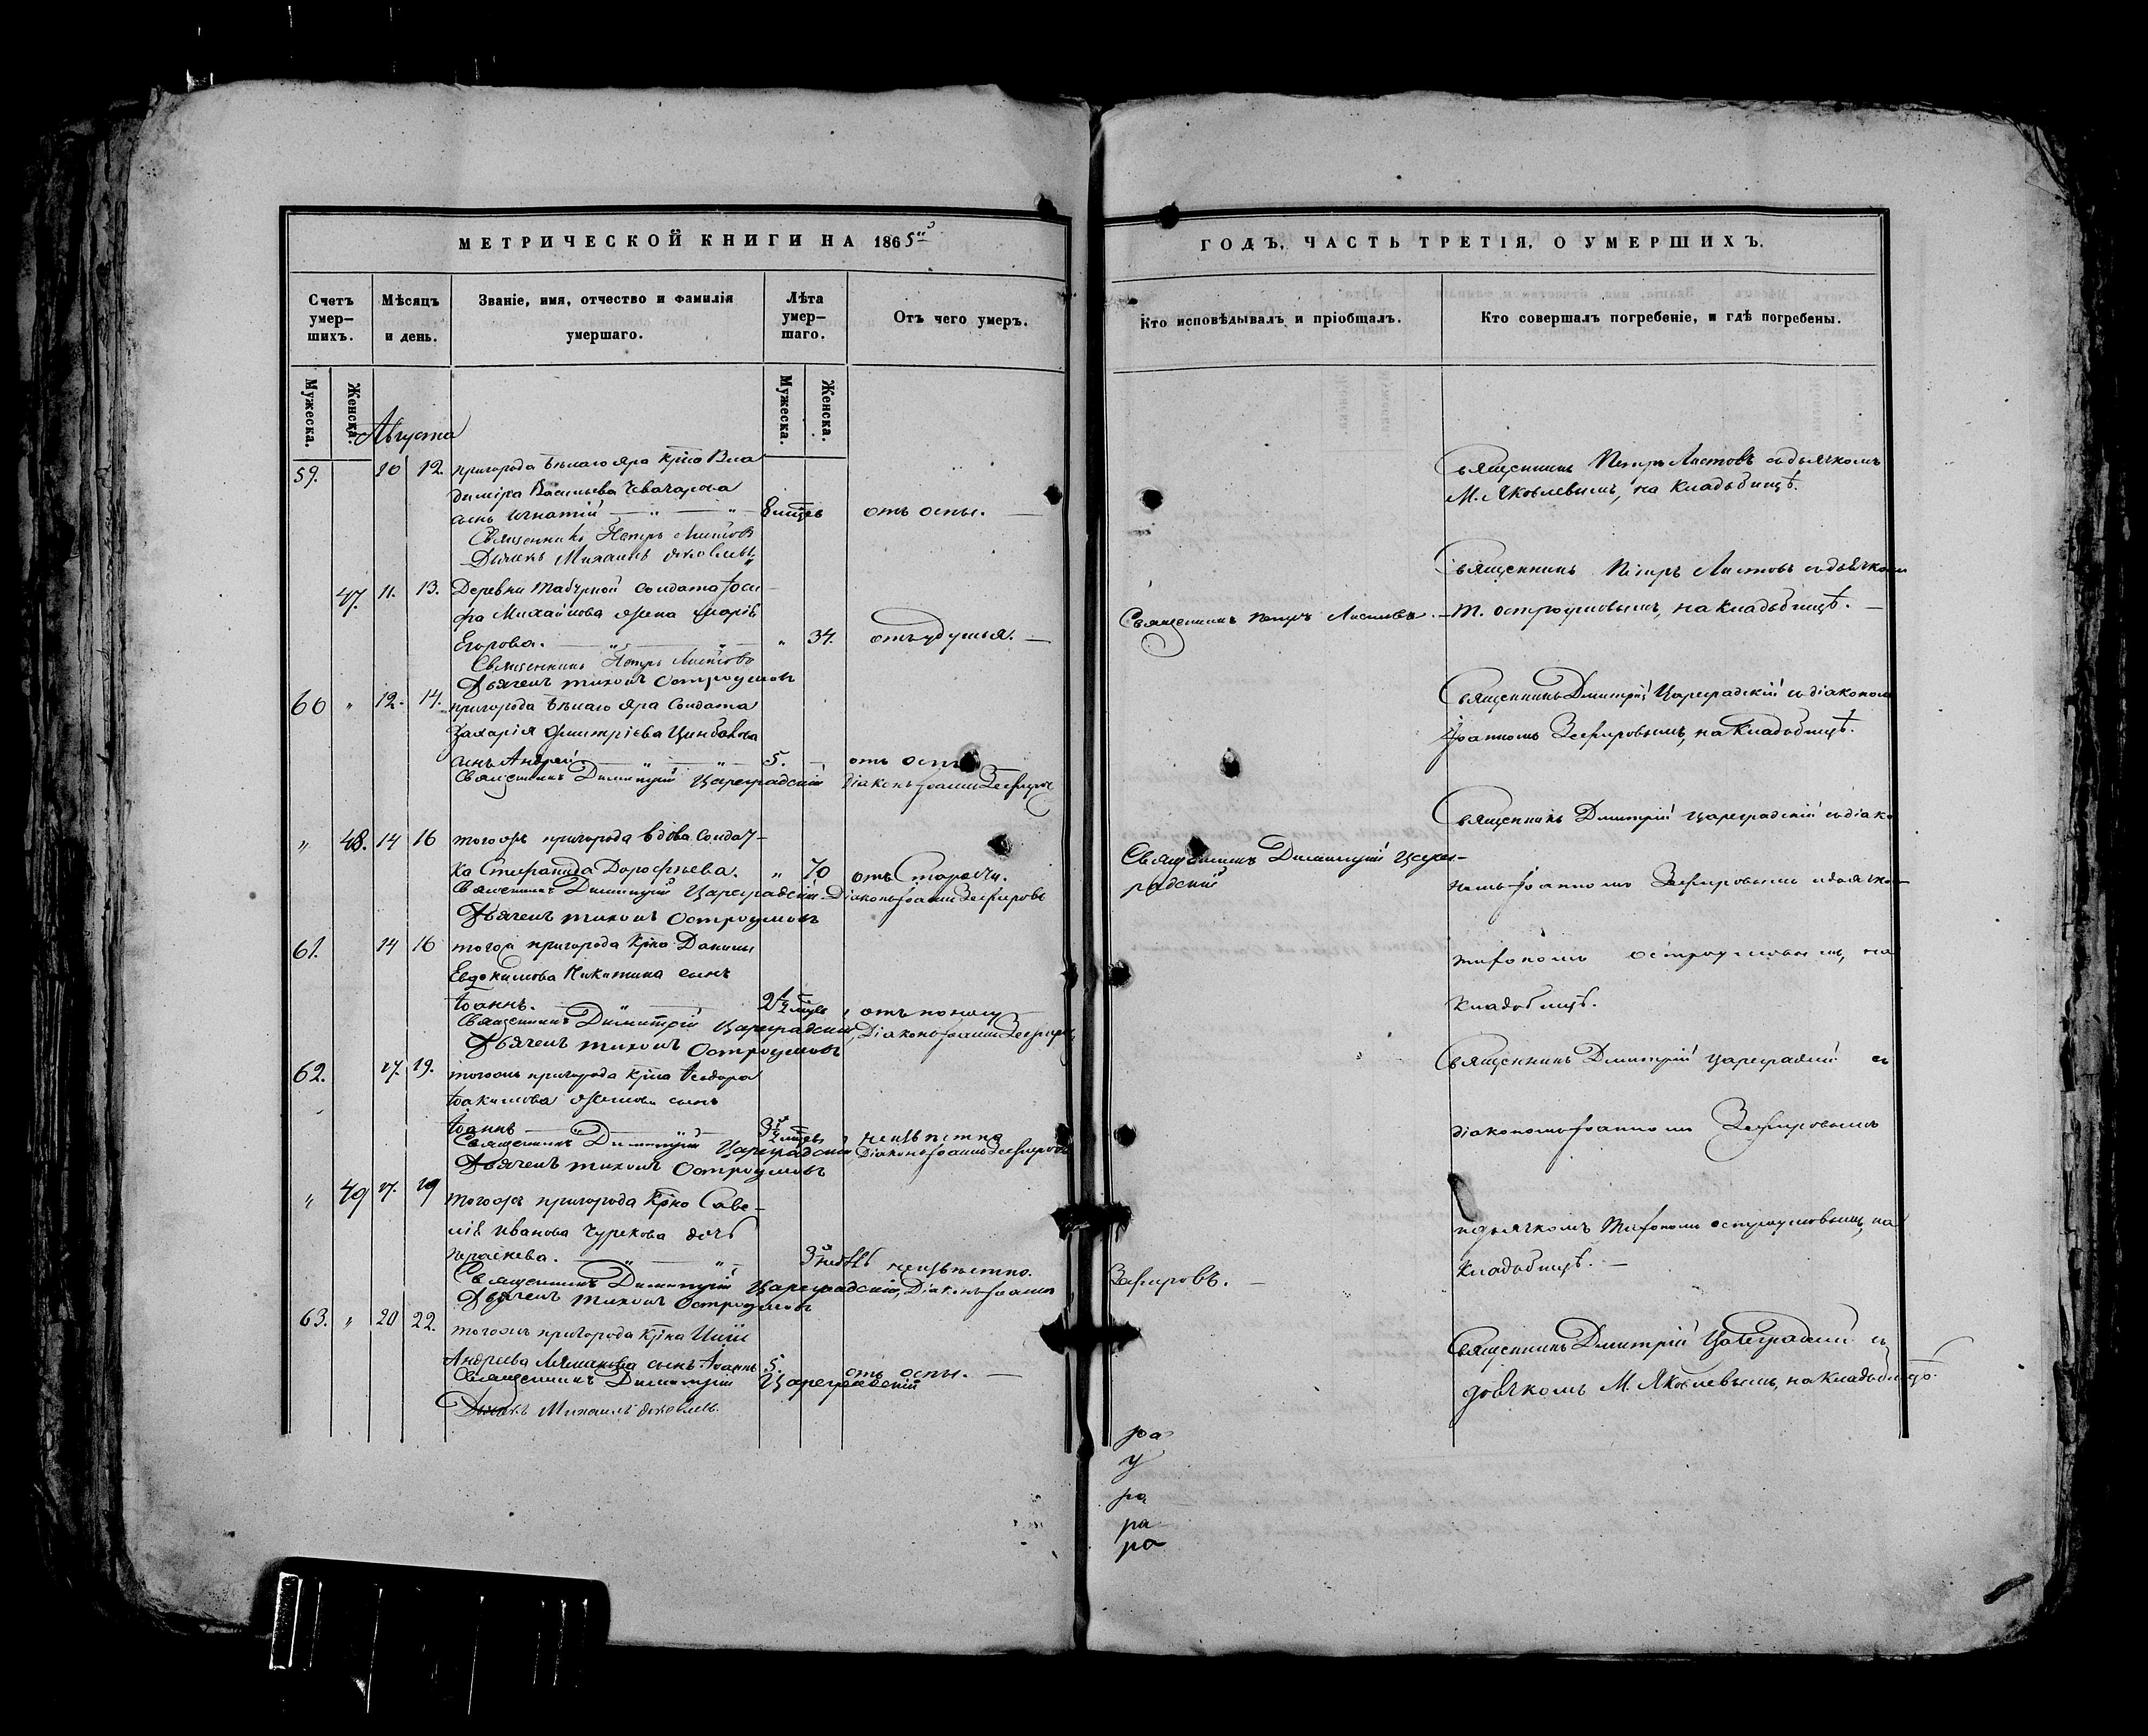 МЕТРИЧЕСКОЙ КНИГИ НА 1865й
Счетъ умер-шихъ.
Мѣсяцъ и день.
Званіе, имя, отчество и фамилія умершаго.
Лѣта умер-шаго.
Отъ чего умеръ.
Мужеска.
Женска.
Мужеска.
Женска.
Августа
59. 10 12. пригорода Бѣлаго Яра Крно Вла
диміра Васильева
сынъ Игнатій — " — " — 8 мцевъ отъ оспы. —
Священникъ Петръ Листовъ
Дьячекъ Михаилъ Яковлевъ
47. 11. 13. Деревни Табурной солдата Іоси
фа Михайлова жена Марія
Егорова. — " — " — " 34. отъ удушья. —
Священникъ Петръ Листовъ
Дьячекъ Тихонъ Остроумовъ
60 " 12. 14. пригорода Бѣлаго Яра Солдата
Захарія Дмитріева
сынъ Андрей — " — " — 5. — отъ оспы
Священникъ Димитрій Цареградскій Діаконъ Іоаннъ Зефировъ
" 48. 14 16 тогожъ пригорода вдова солдат-
ка Стефанида Дорофѣева. " 70 отъ Старости.
Священникъ Димитрій Цареградскій Діаконъ Іоаннъ Зефировъ
Дьячекъ Тихонъ Остроумовъ
61. 14 16 тогож пригорода Крно Данилы
Евдокимова Никитина сынъ
Іоаннъ. — " — 2½ мцевъ, отъ поносу
Священникъ Димитрій Цареградскій, Діаконъ Іоаннъ Зефировъ
Дьячекъ Тихонъ Остроумовъ
62. 17. 19. тогожъ пригорода Крно Ѳеодора
Іоакимова сынъ
Іоаннъ — " — мцевъ, неизвѣстно
Священникъ Димитрій Цареградскій, Діаконъ Іоаннъ Зефировъ
Дьячекъ Тихонъ Остроумовъ
" 49 17. 19 тогожъ пригорода Крно Саве-
лія Иванова Чурекова дочь
— " — " — 3 недѣль неизвѣстно.
Священникъ Димитрій Цареградскій, Діаконъ Іоаннъ
Дьячекъ Тихонъ Остроумовъ
63. " 20 22. тогожъ пригорода Крна Иліи
Андреева сынъ Іоаннъ 5. отъ оспы. —
Священникъ Димитрій Цареградскій
Дьячекъ Михаилъ Яковлевъ.
ГОДЪ, ЧАСТЬ ТРЕТІЯ, О УМЕРШИХЪ.
Кто исповѣдывалъ и пріобщалъ.
Кто совершалъ погребеніе, и гдѣ погребены.
Священникъ Петръ Листовъ съ дьячкомъ
М. Яковлевымъ, на кладбищѣ.
Священникъ Петръ Листовъ съ дьячком
Священникъ Петръ Листовъ. — Т. Остроумовымъ, на кладбищѣ. —
Священникъ Дмитрій Цареградскій съ діакономъ
Іоанномъ Зефировымъ, на кладбищѣ.
Священникъ Дмитрій Цареградскій съ діако
Священникъ Димитрій Царег-
радскій
номъ Іоанномъ Зефировымъ и дьячко
Тихономъ Остроумовымъ, на
кладбищѣ.
Священникъ Дмитрій Цареградскій съ
діакономъ Іоанномъ Зефировымъ
и дьячкомъ Тихономъ Остроумовымъ, на
Зефировъ. —
кладбищѣ. —
Священникъ Дмитрій Цареградскій съ
дьячкомъ М. Яковлевымъ, на кладбищѣ.
ра
у
ра
ра
ра